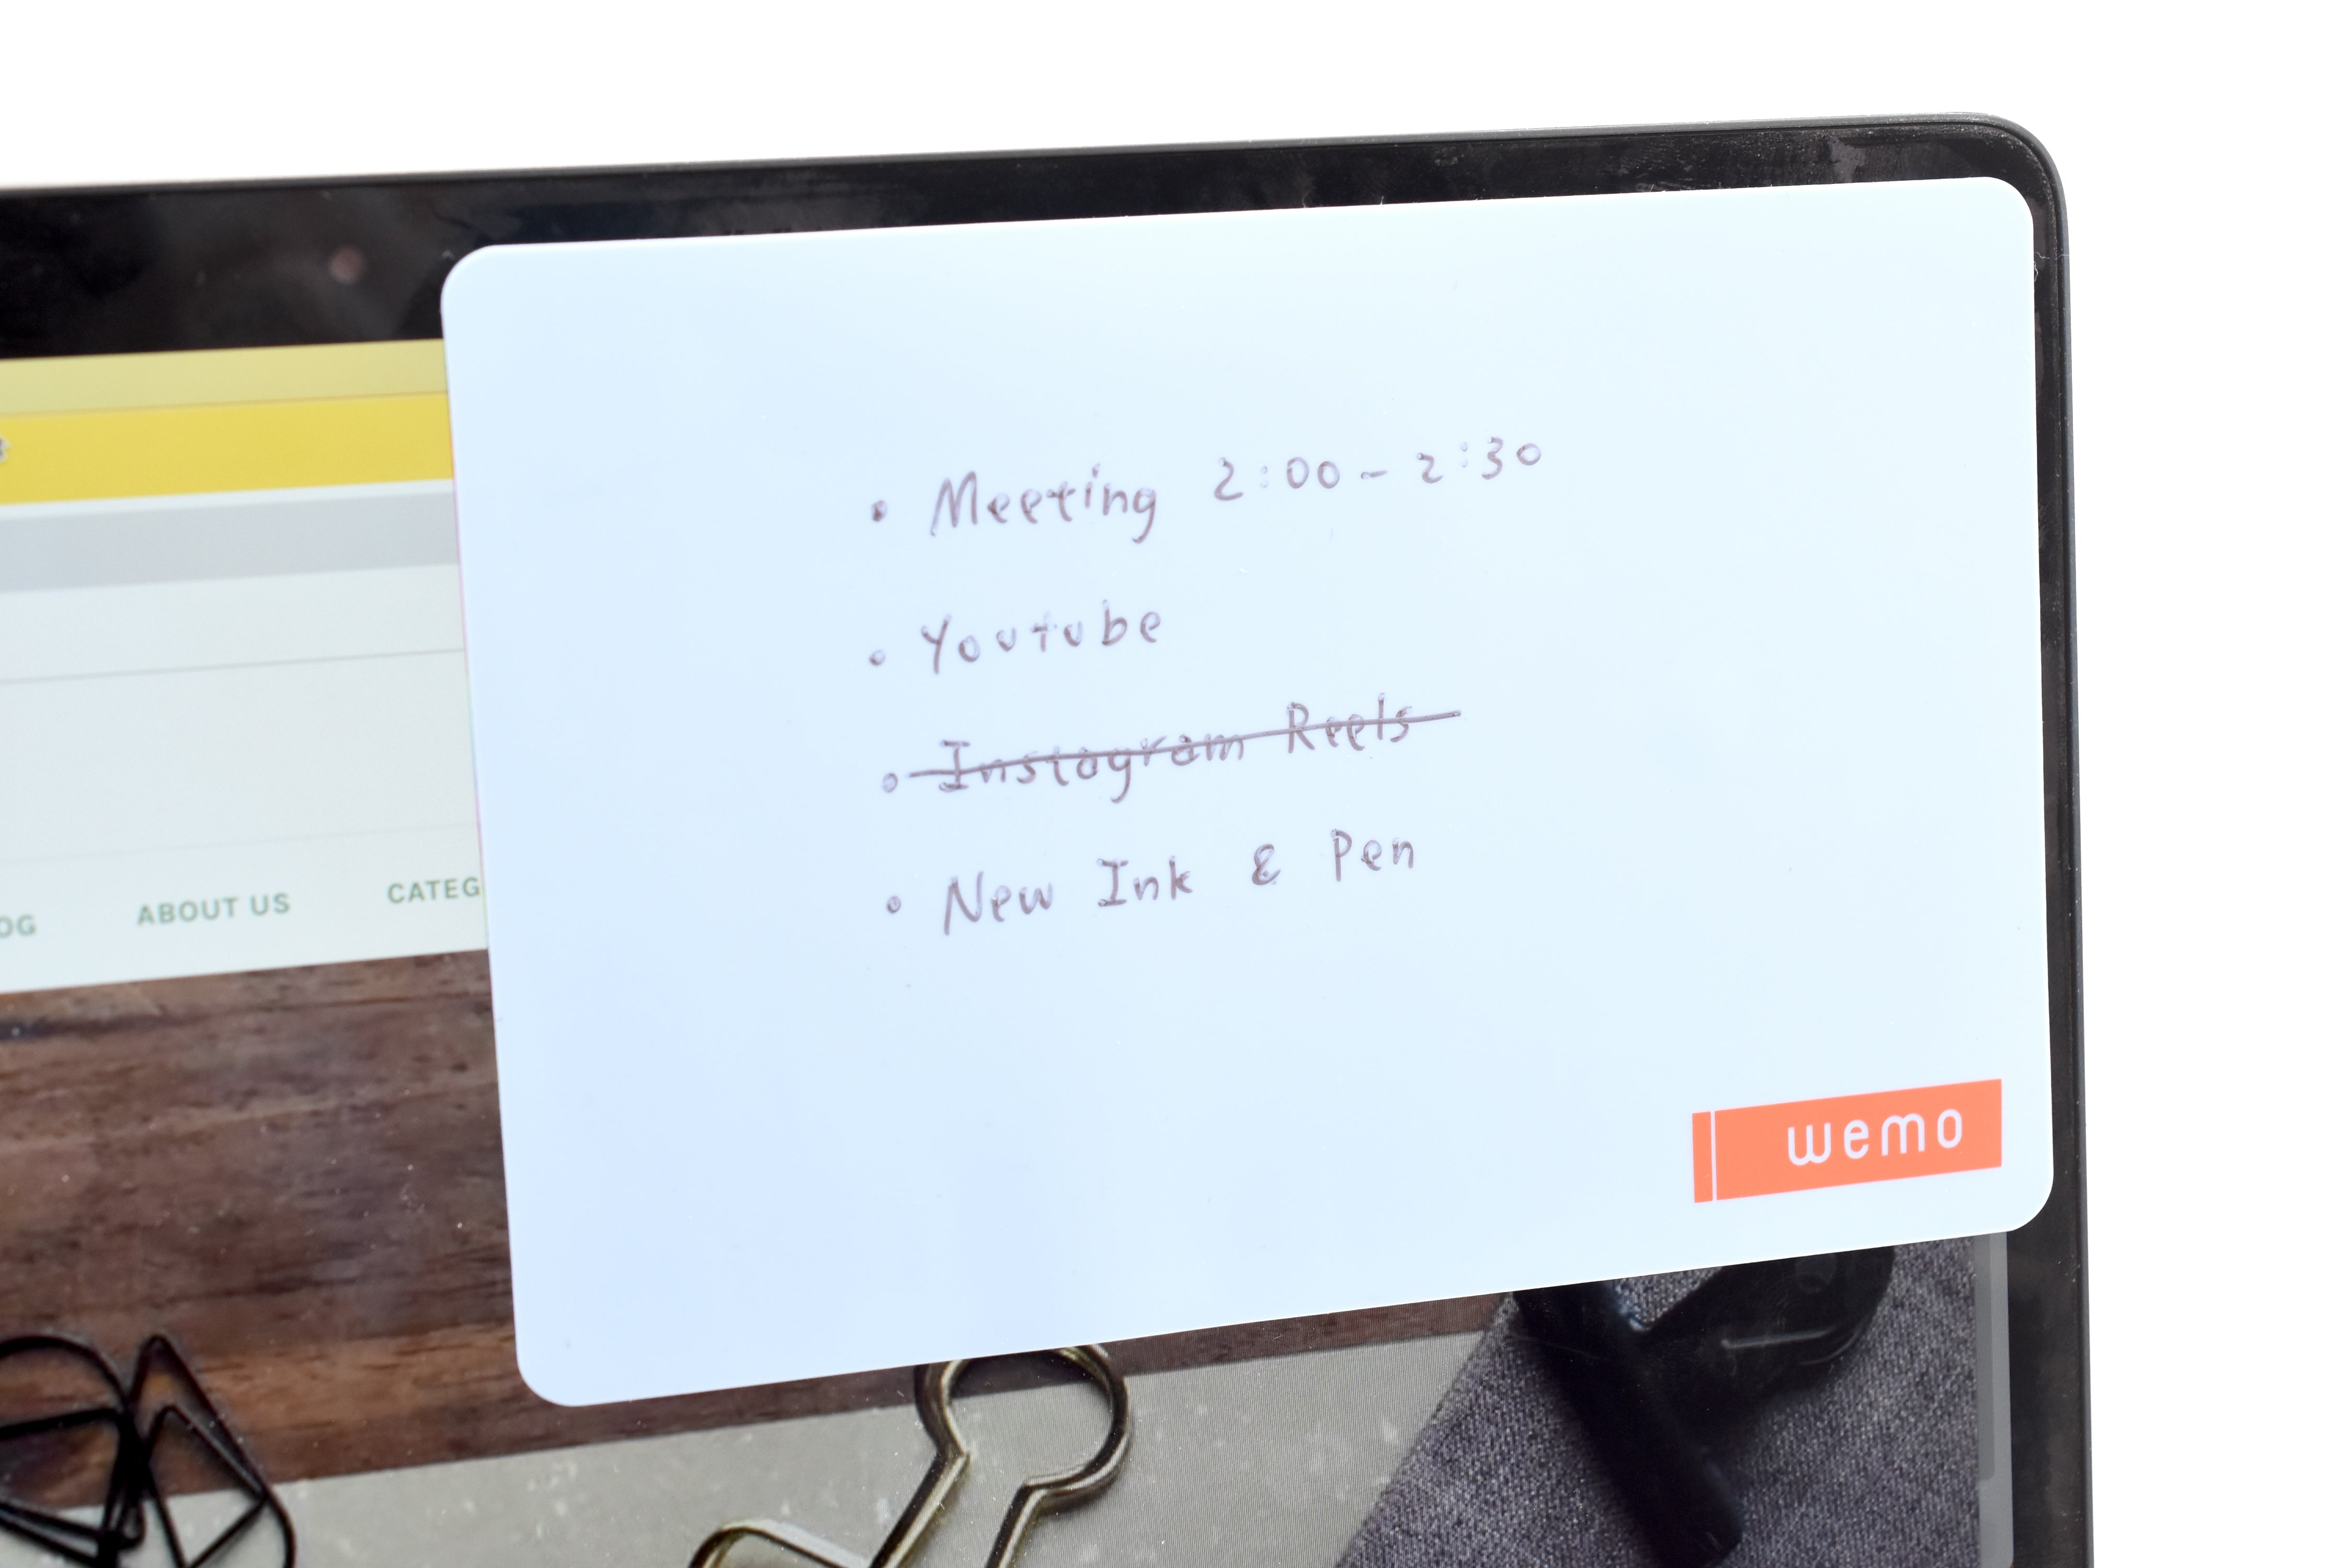 • Meeting 2:00 - 2:30
• Youtube
• Instagram Reels
• New Ink & Pen
wemo
OG ABOUT US CATEG